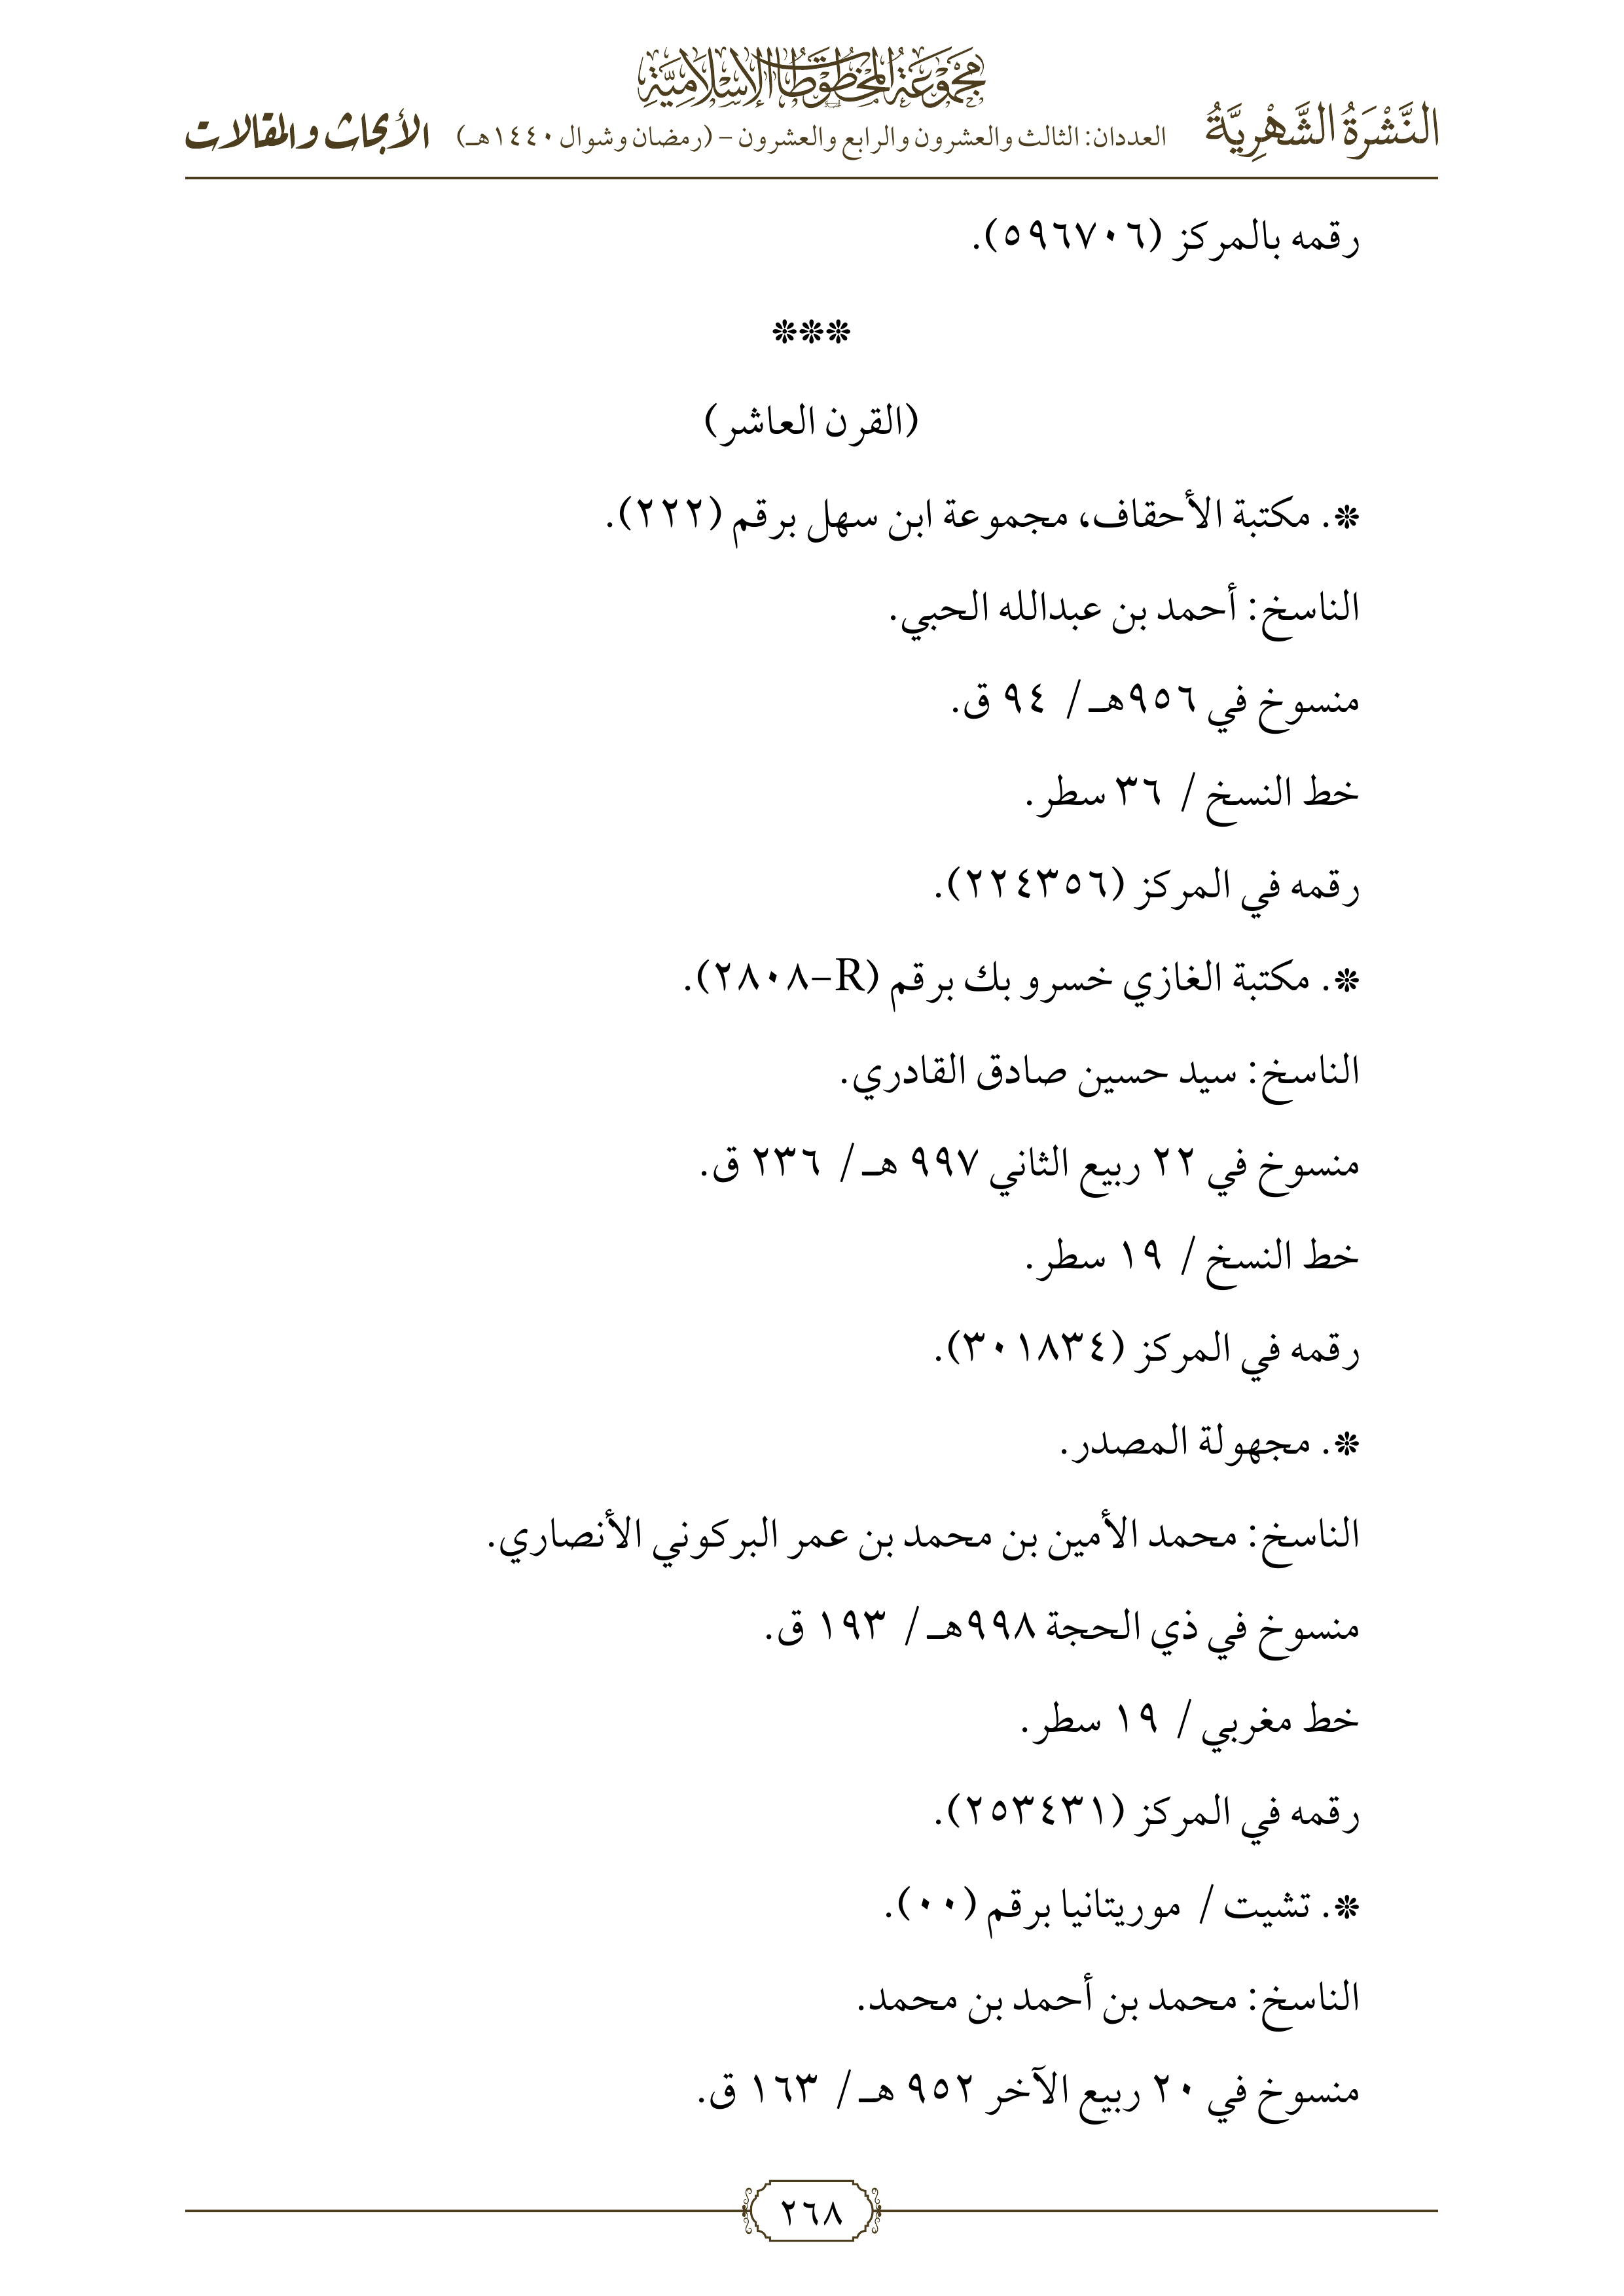 مجموعة المخطوطات الإسلامية
النَّشْرَةُ الشَّهْرِيَّةُ العددان: الثالث والعشرون والرابع والعشرون - (رمضان وشوال ١٤٤٠هـ) الأبحاث والمقالات
رقمه بالمركز (٥٩٦٧٠٦).
***
(القرن العاشر)
*. مكتبة الأحقاف، مجموعة ابن سهل برقم (٢٢٢).
الناسخ: أحمد بن عبدالله الحبي.
منسوخ في ٩٥٦هـ/ ٩٤ ق.
خط النسخ/ ٣٦ سطر.
رقمه في المركز (٢٢٤٣٥٦).
*. مكتبة الغازي خسرو بك برقم (R-٢٨٠٨).
الناسخ: سيد حسين صادق القادري.
منسوخ في ٢٢ ربيع الثاني ٩٩٧ هـ/ ٢٣٦ ق.
خط النسخ/ ١٩ سطر.
رقمه في المركز (٣٠١٨٣٤).
*. مجهولة المصدر.
الناسخ: محمد الأمين بن محمد بن عمر البركوني الأنصاري.
منسوخ في ذي الحجة ٩٩٨هـ/ ١٩٣ ق.
خط مغربي/ ١٩ سطر.
رقمه في المركز (٢٥٣٤٣١).
*. تشيت/ موريتانيا برقم (٠٠).
الناسخ: محمد بن أحمد بن محمد.
منسوخ في ٢٠ ربيع الآخر ٩٥٢ هـ/ ١٦٣ ق.
٢٦٨